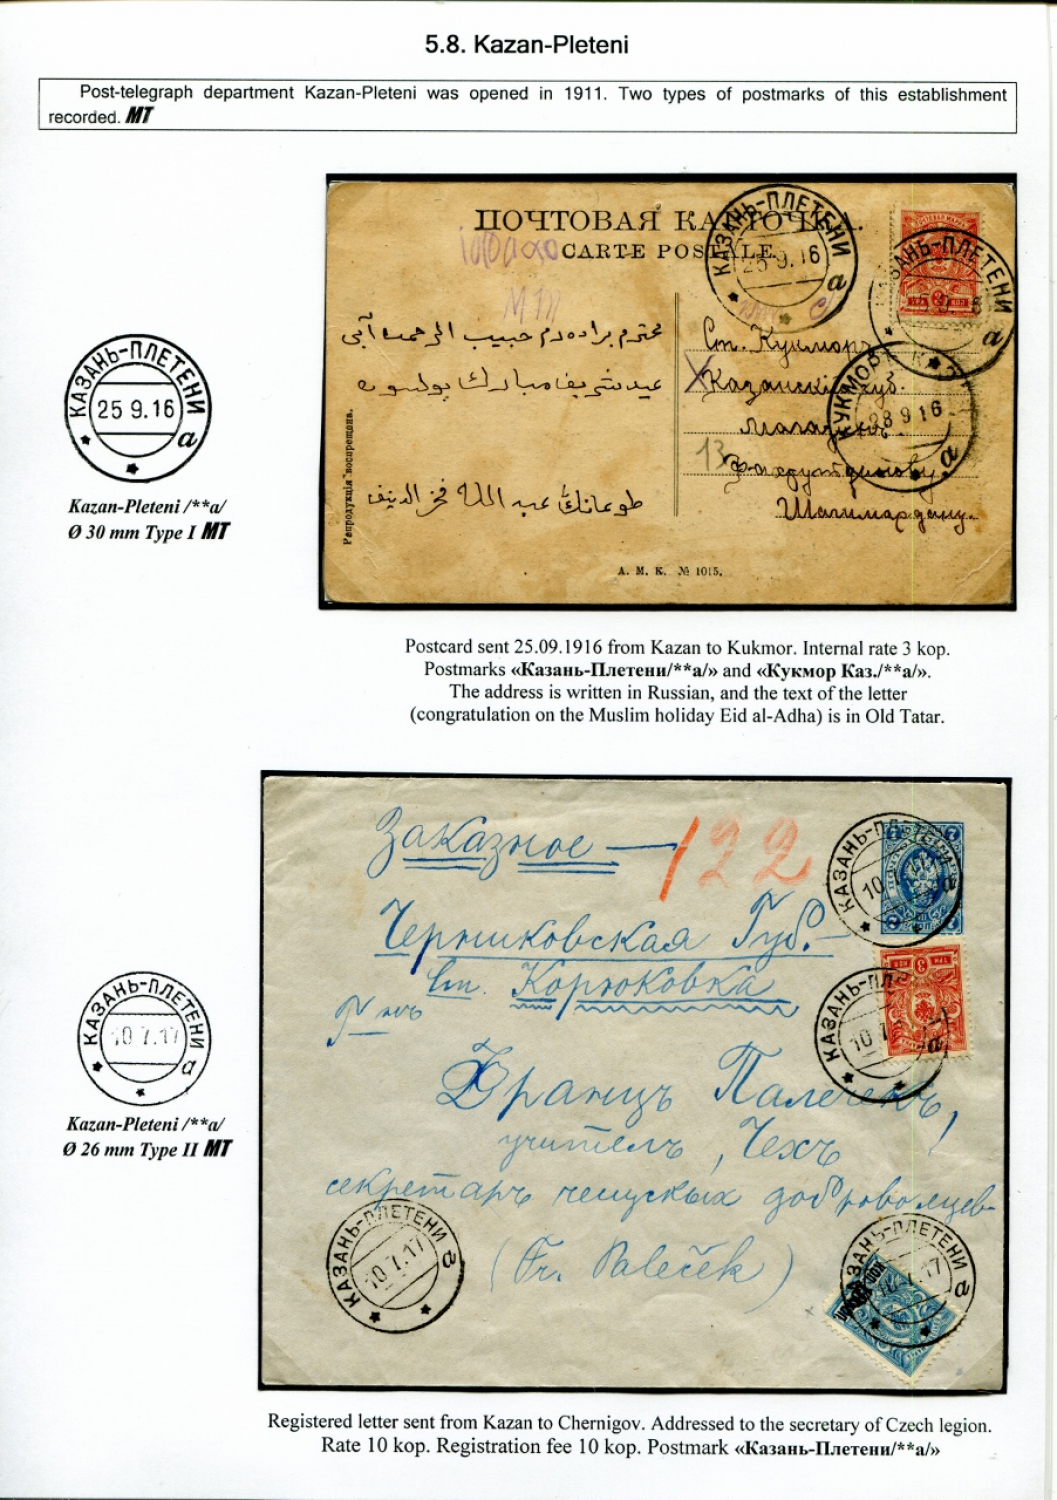 5.8. Kazan-Pleteni
Post-telegraph department Kazan-Pleteni was opened in 1911. Two types of postmarks of this establishment
recorded. МТ
ПОЧТОВАЯ КАРТОЧКА.
CARTE POSTALE.
КАЗАНЬ-ПЛЕТЕНИ
25 9.16
а
КАЗАНЬ-ПЛЕТЕНИ
а
МТ
محترم برادەرم حبيب الرحمن آبى
عيد شريف مبارك بولسون
عبد الله فخر الدينف
Ст. Кукмор
Казанской губ.
Магазин
Фахрутдинову
Шагимардану.
13
КУКМОР КАЗ.
28 9 16
а
Репродукція воспрещена.
А. М. К. № 1015.
КАЗАНЬ-ПЛЕТЕНИ
25 9.16
а
Kazan-Pleteni /**а/
Ø 30 mm Type I МТ
Postcard sent 25.09.1916 from Kazan to Kukmor. Internal rate 3 kop.
Postmarks «Казань-Плетени/**а/» and «Кукмор Каз./**а/».
The address is written in Russian, and the text of the letter
(congratulation on the Muslim holiday Eid al-Adha) is in Old Tatar.
Заказное — 122
Черниковская Губ.
Ст. Корюковка
Г-нъ
Францъ Палечекъ,
учитель, Чехъ
секретарь чешскых добровольцев
(Fr. Paleček)
КАЗАНЬ-ПЛЕТЕНИ
10
а
КАЗАНЬ-ПЛЕТЕНИ
10 7.1
а
КАЗАНЬ-ПЛЕТЕНИ
10.7.17
а
КАЗАНЬ-ПЛЕТЕНИ
10.7.17
а
КАЗАНЬ-ПЛЕТЕНИ
10 7.17
а
Kazan-Pleteni /**а/
Ø 26 mm Type II МТ
Registered letter sent from Kazan to Chernigov. Addressed to the secretary of Czech legion.
Rate 10 kop. Registration fee 10 kop. Postmark «Казань-Плетени/**а/»